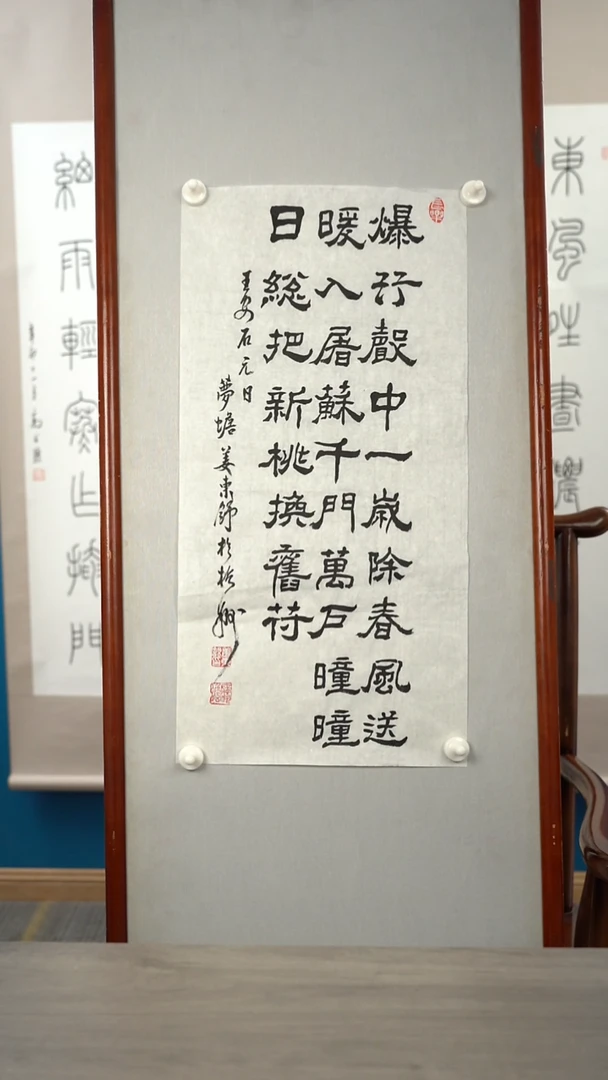 爆竹聲中一歲除春風送
暖入屠蘇千門萬戶曈曈
日総把新桃換舊苻
王安石元日
姜東舒於杭州
東風
細雨輕寒掩門